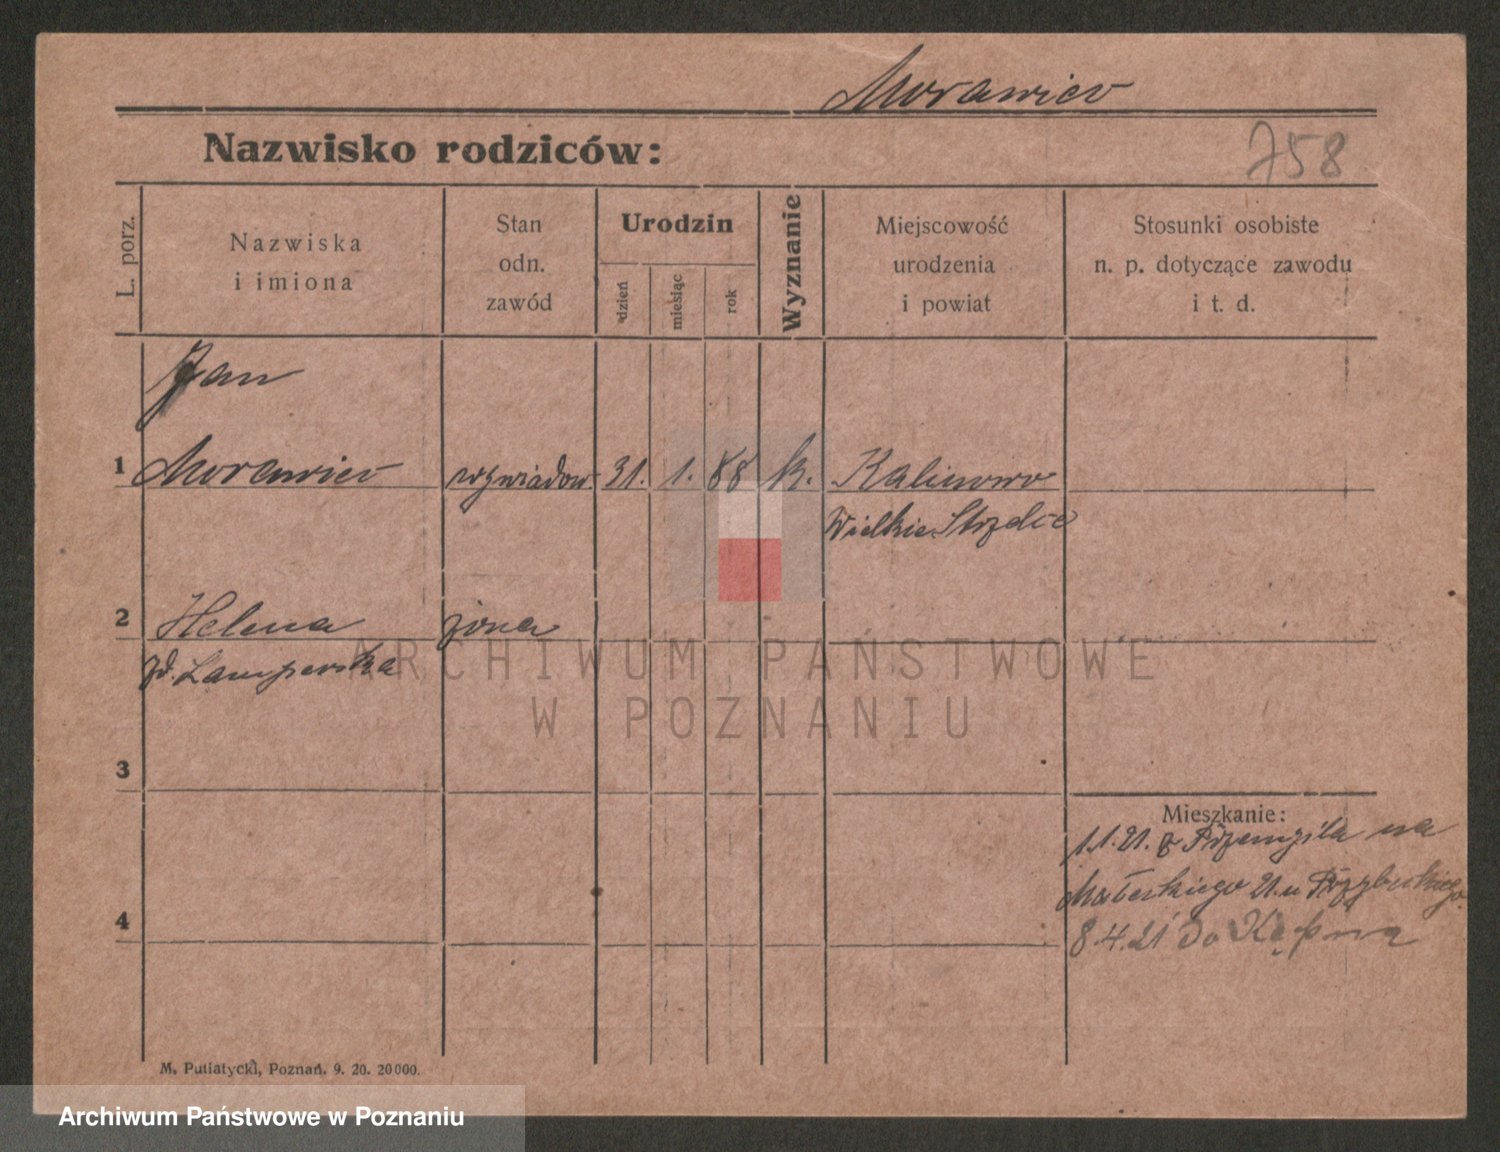 Morawiec
Nazwisko rodziców:
758
L. porz.
Nazwiska
i imiona
Stan
odn.
zawód
Urodzin
dzień
miesiąc
rok
Wyznanie
Miejscowość
urodzenia
i powiat
Stosunki osobiste
n. p. dotyczące zawodu
i t. d.
Jan
1 Morawiec wywiadow 31. 1. 88 k. Kalinowo
Wielkie Strzelce
2 Helena żona
zd.
ARCHIWUM PAŃSTWOWE
W POZNANIU
3
Mieszkanie:
1.1.21. z na
21. u
4
8.4.21 do Kępna
M. Putiatycki, Poznań. 9. 20. 20000.
Archiwum Państwowe w Poznaniu